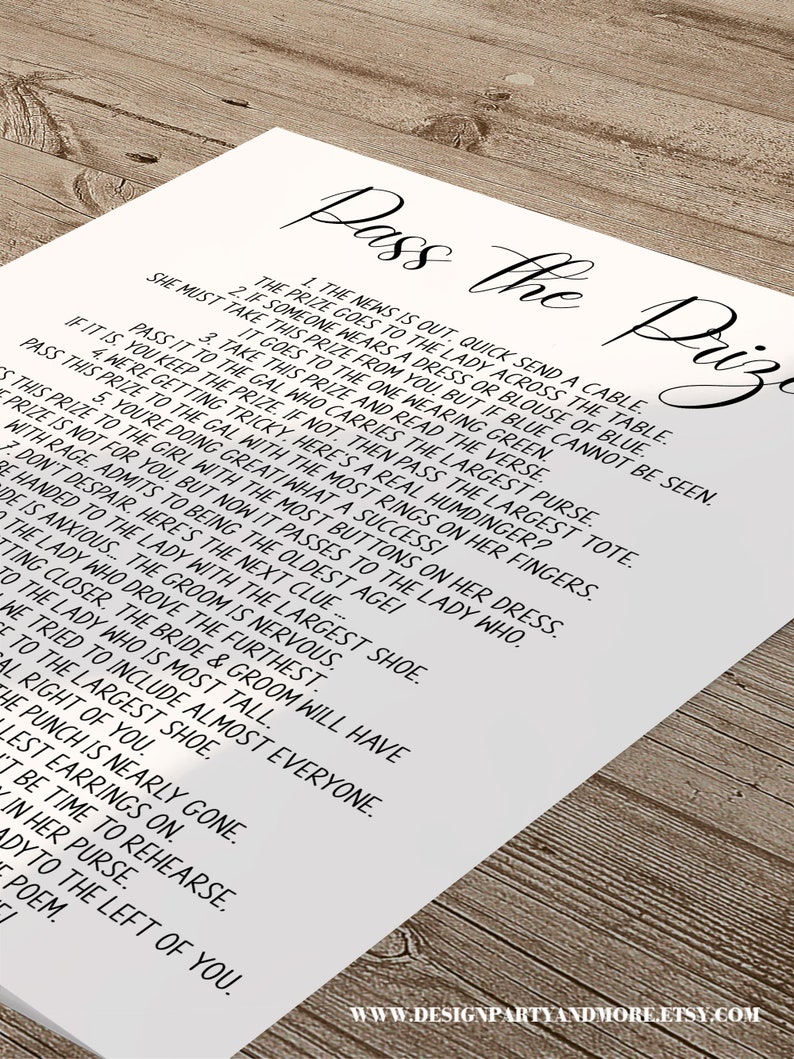 Pass the Prize
1. THE NEWS IS OUT. QUICK SEND A CABLE.
THE PRIZE GOES TO THE LADY ACROSS THE TABLE.
2. IF SOMEONE WEARS A DRESS OR BLOUSE OF BLUE.
SHE MUST TAKE THIS PRIZE FROM YOU BUT IF BLUE CANNOT BE SEEN.
IT GOES TO THE ONE WEARING GREEN.
3. TAKE THIS PRIZE AND READ THE VERSE.
PASS IT TO THE GAL WHO CARRIES THE LARGEST PURSE.
IF IT IS, YOU KEEP THE PRIZE. IF NOT, THEN PASS THE LARGEST TOTE.
4. WE'RE GETTING TRICKY, HERE'S A REAL HUMDINGER?
PASS THIS PRIZE TO THE GAL WITH THE MOST RINGS ON HER FINGERS.
5. YOU'RE DOING GREAT WHAT A SUCCESS!
THIS PRIZE TO THE GIRL WITH THE MOST BUTTONS ON HER DRESS.
PRIZE IS NOT FOR YOU, BUT NOW IT PASSES TO THE LADY WHO,
WITH RAGE, ADMITS TO BEING THE OLDEST AGE!
DON'T DESPAIR, HERE'S THE NEXT CLUE...
BE HANDED TO THE LADY WITH THE LARGEST SHOE.
IS ANXIOUS, THE GROOM IS NERVOUS,
TO THE LADY WHO DROVE THE FURTHEST.
CLOSER, THE BRIDE & GROOM WILL HAVE
TO THE LADY WHO IS MOST TALL.
WE TRIED TO INCLUDE ALMOST EVERYONE.
TO THE LARGEST SHOE.
RIGHT OF YOU.
THE PUNCH IS NEARLY GONE.
EARRINGS ON.
BE TIME TO REHEARSE,
IN HER PURSE.
TO THE LEFT OF YOU.
POEM.
WWW.DESIGNPARTYANDMORE.ETSY.COM